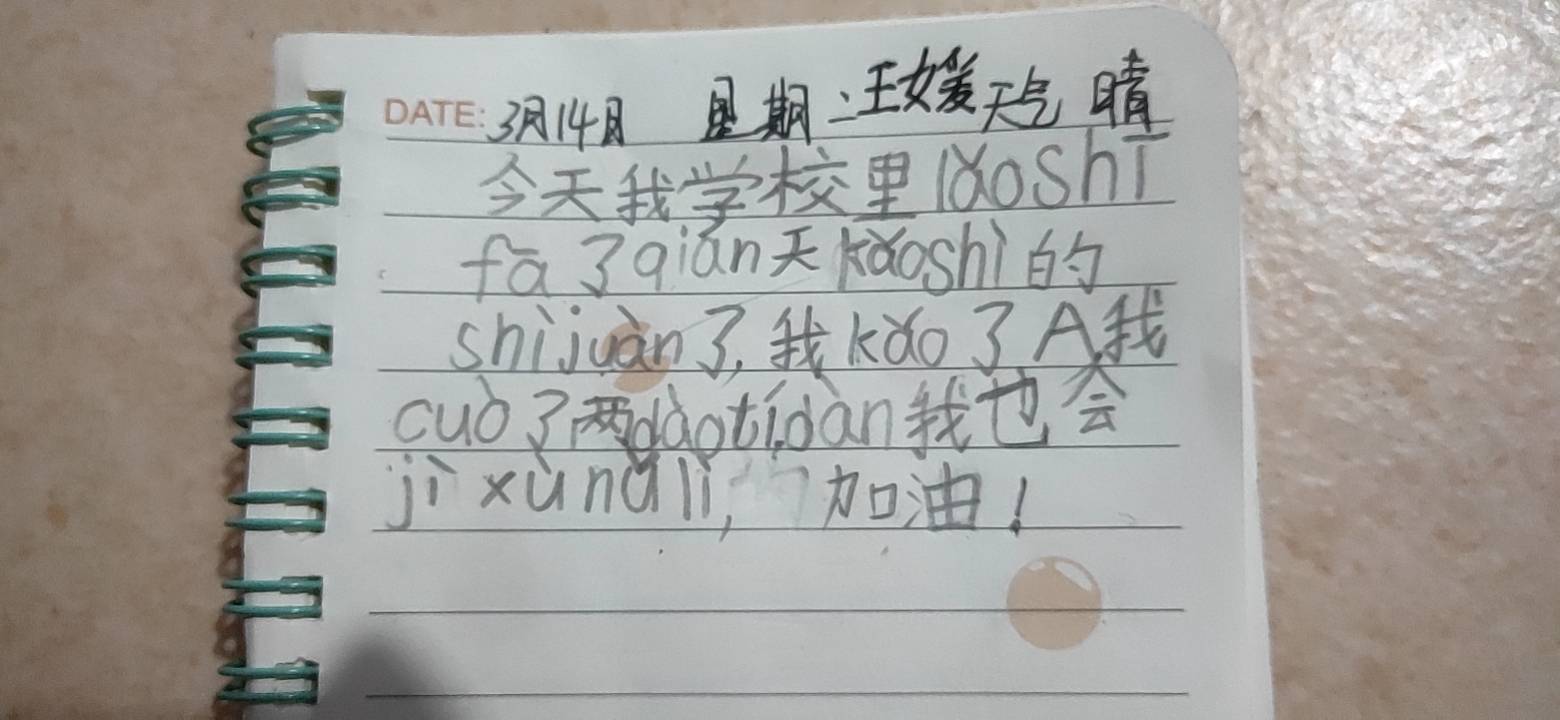 DATE: 3月14日 星期二 王媛 天气 晴
今天我学校里lǎoshī
fā了qián天kǎoshì的
shìjuàn了,我kǎo了A我
cuò了两dàotí,dàn我也会
jìxùnǔlì, 加油!